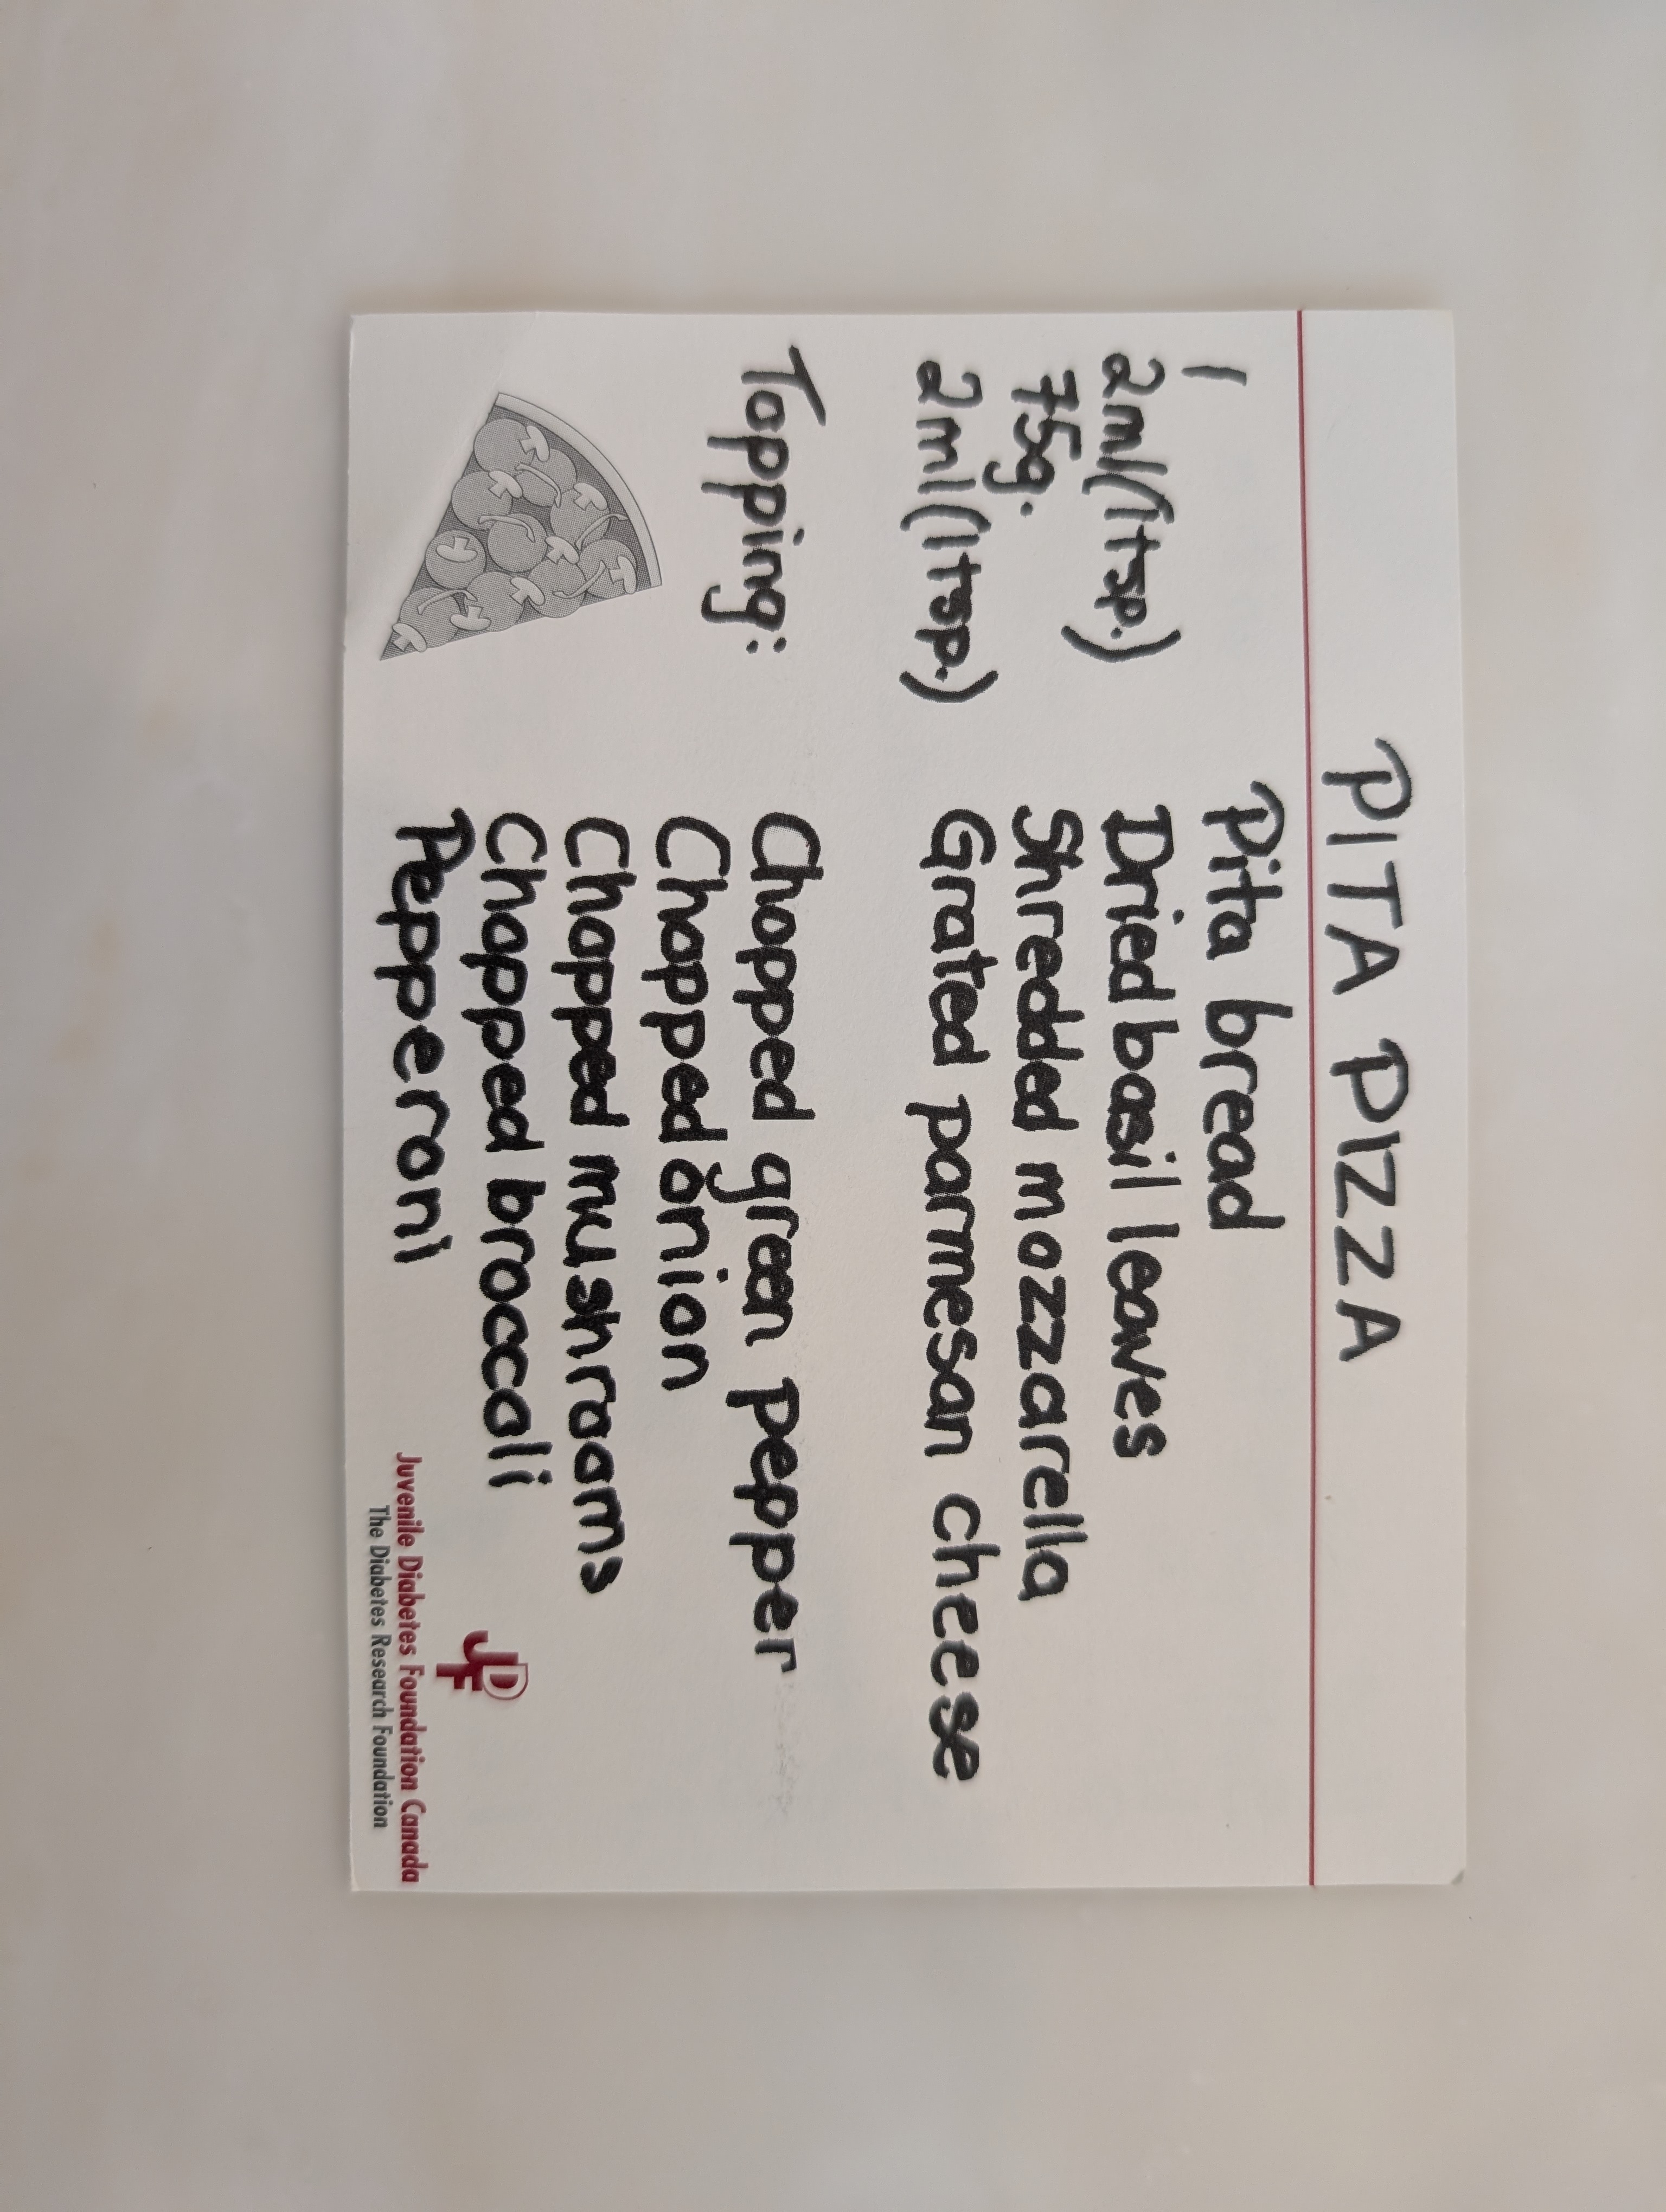 PITA PIZZA
1 Pita bread
2ml(1tsp.) Dried basil leaves
75g. Shredded mozzarella
2ml(1tsp.) Grated parmesan cheese
Topping: Chopped green pepper
Chopped onion
Chopped mushrooms
Chopped broccoli
Pepperoni
JDF
Juvenile Diabetes Foundation Canada
The Diabetes Research Foundation